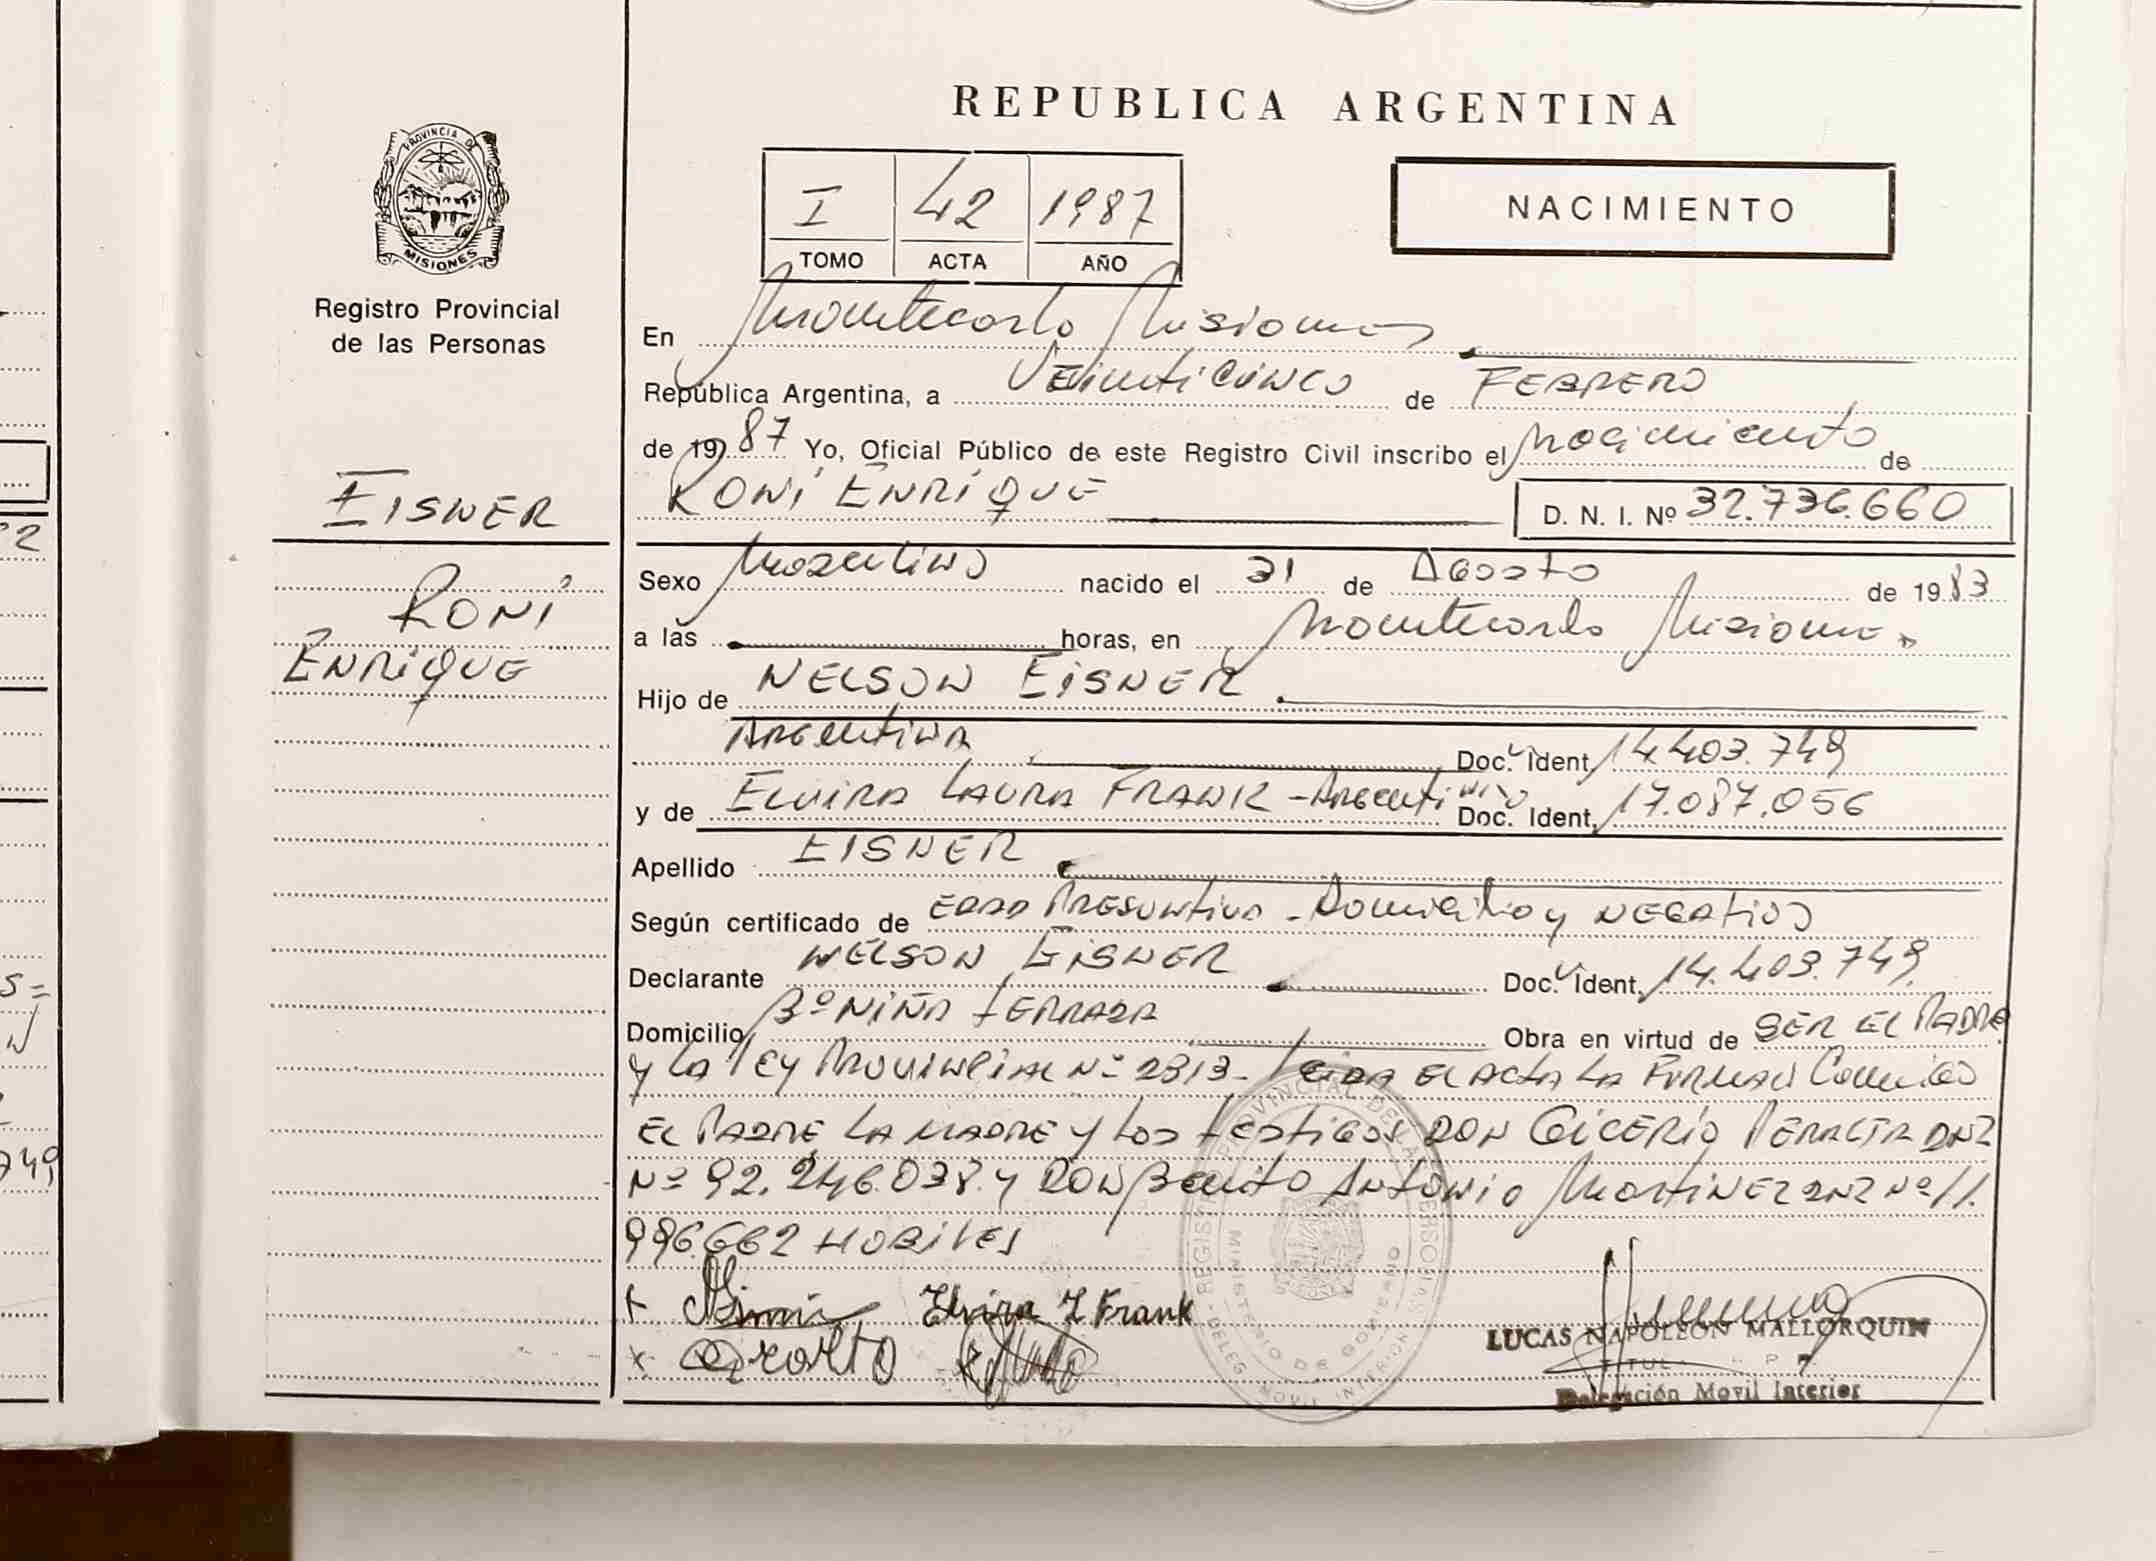 REPUBLICA ARGENTINA
PROVINCIA DE
MISIONES
Registro Provincial
de las Personas
I 42 1987
TOMO ACTA AÑO
NACIMIENTO
En Montecarlo Misiones
República Argentina, a Veinticinco de FEBRERO
de 1987 Yo, Oficial Público de este Registro Civil inscribo el Nacimiento de
RONI ENRIQUE D. N. I. Nº 32.736.660
EISNER
RONI
ENRIQUE
Sexo Masculino nacido el 31 de Agosto de 1983
a las horas, en Montecarlo Misiones
Hijo de NELSON EISNER
Argentina Doc. Ident. 14.403.749
y de ELVIRA LAURA FRANK - Argentina Doc. Ident. 17.087.056
Apellido EISNER
Según certificado de EDAD PRESUNTIVA - Domicilio y NEGATIVO
Declarante NELSON EISNER Doc. Ident. 14.403.749
Domicilio Bº NIÑA Obra en virtud de SER EL PADRE
y LA LEY PROVINCIAL Nº 2313 - Leida EL ACTA LA FIRMAN Conmigo
EL PADRE LA MADRE y Los testigos DON GLICERIO PERALTA DNI
Nº 92.246.038 y DON Benito Antonio MARTINEZ DNI Nº 11.
996.662 HABILES
Elvira L Frank
LUCAS NAPOLEON MALLORQUIN
TITUL
Delegación Movil Interior
REGISTRO PROVINCIAL DE LAS PERSONAS
MINISTERIO DE GOBIERNO
DELEG. MOVIL INTERIOR